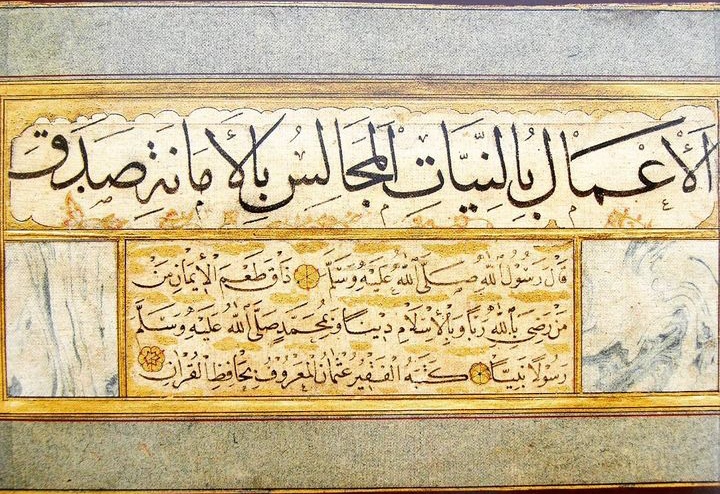 الأَعْمَالُ بِالنِّيَّاتِ الْمَجَالِسُ بِالأَمَانَةِ صَدَقَ
قَالَ رَسُولُ اللهِ صَلَّى اللهُ عَلَيْهِ وَسَلَّمَ ذَاقَ طَعْمَ الْإِيمَانِ مَنْ
مَنْ رَضِيَ بِاللهِ رَبًّا وَبِالْإِسْلَامِ دِينًا وَبِمُحَمَّدٍ صَلَّى اللهُ عَلَيْهِ وَسَلَّمَ
رَسُولًا نَبِيًّا كَتَبَهُ الْفَقِيرُ عُثْمَانُ الْمَعْرُوفُ بِحَافِظِ الْقُرْآنِ